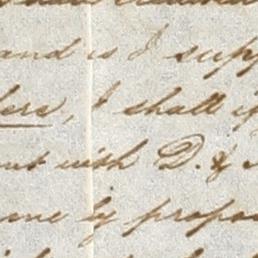 and is I supp
ers, I shall if
out with D. &
one by propos